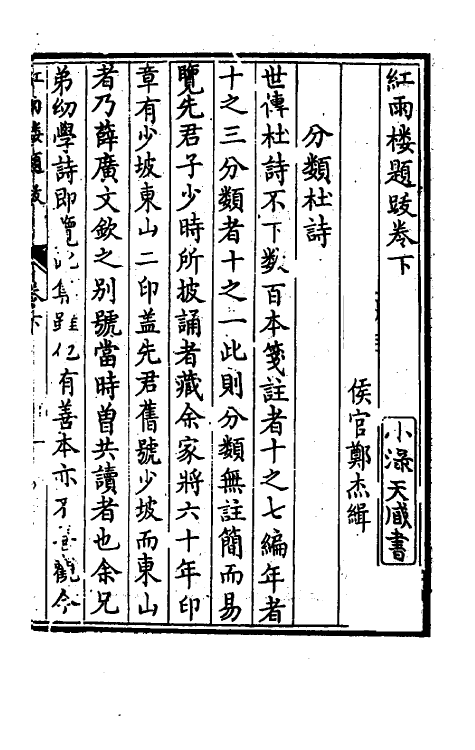 紅雨楼題跋卷下
小渌天臧書
侯官鄭杰緝
分類杜詩
世傳杜詩不下数百本箋註者十之七編年者
十之三分類者十之一此則分類無註簡而易
覽先君子少時所披誦者藏余家將六十年印
章有少坡東山二印盖先君舊號少坡而東山
者乃薛廣文欽之別號當時曽共讀者也余兄
弟幼學詩即覽此集雖有善本亦不觀今
紅雨楼題跋 卷下